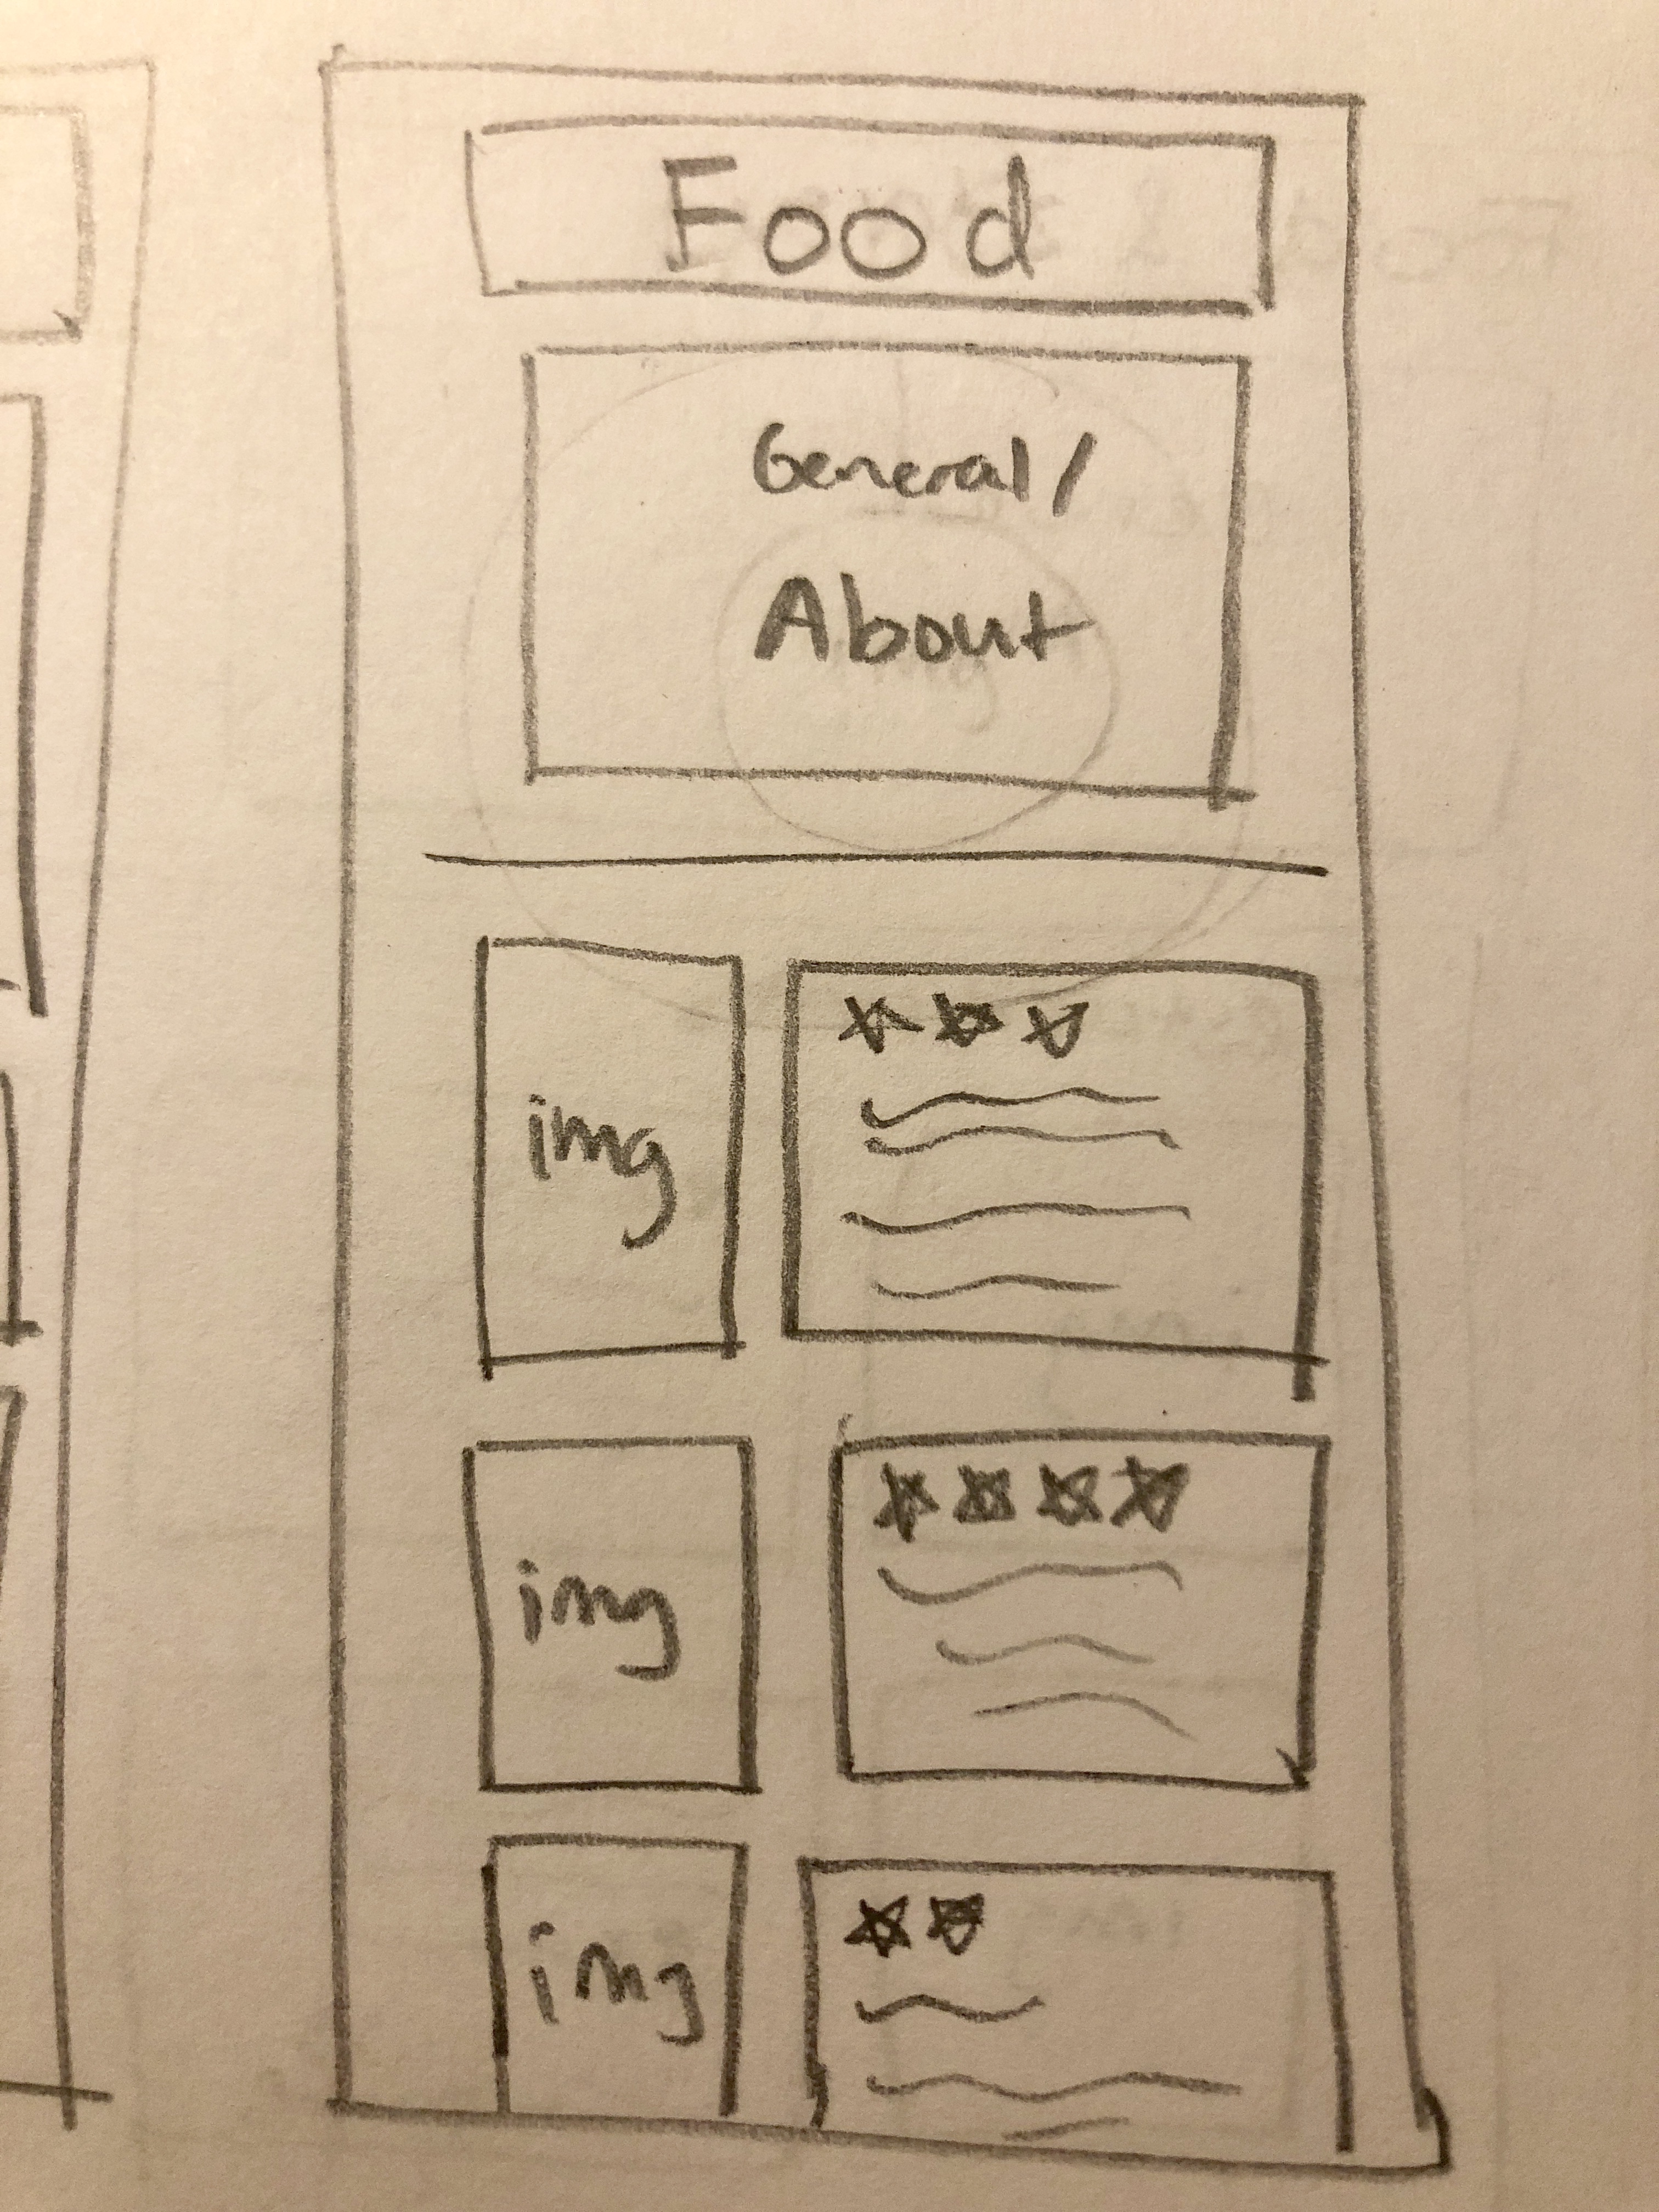 Food
General/
About
img
img
img